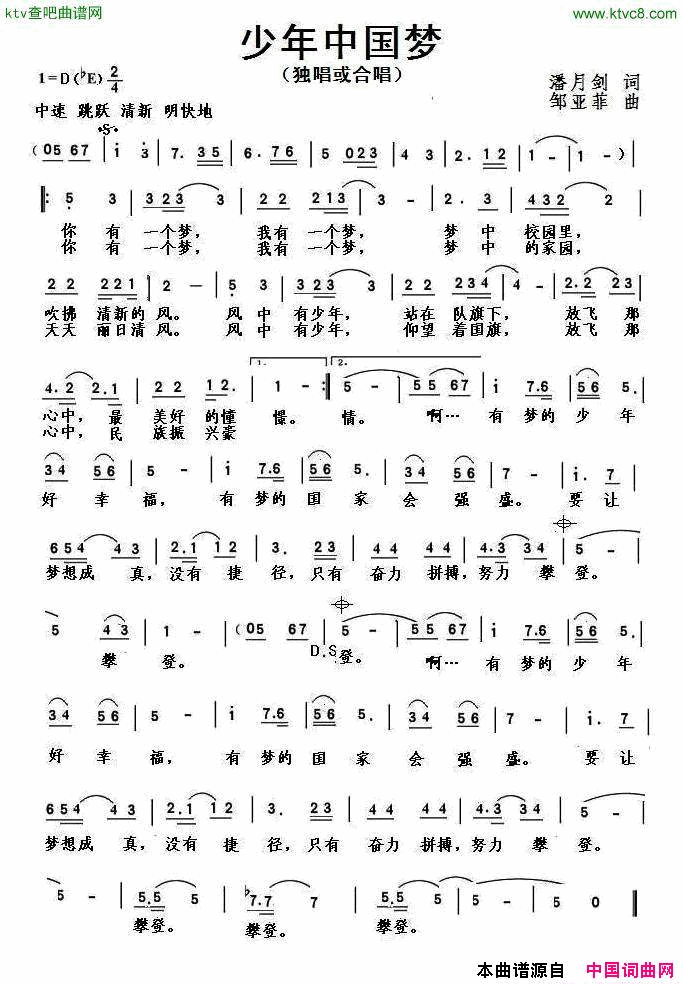 ktv查吧曲谱网
www.ktvc8.com
少年中国梦
（独唱或合唱）
1=D（♭E） 2/4
潘月剑 词
邹亚菲 曲
中速 跳跃 清新 明快地
（05 67 | i 3 | 7. 35 | 6. 76 | 5 023 | 4 3 | 2. 12 | 1 - | 1 - ）
5 3 | 323 3 | 2 2 | 332 213 | 3 - | 2. 3 | 432 2
你 有 一个梦， 我有 一个梦， 梦 中 校园里，
你 有 一个梦， 我有 一个梦， 梦 中 的家园，
22 221 | 2 - | 5 3 | 323 3 | 22 234 | 4 22
吹拂 清新的 风。 风 中 有少年， 站在 队旗下， 放飞 那
天天 丽日清 风。 风 中 有少年， 仰望 着国旗， 放飞 那
1. 2.
4.2 2.1 | 22 12. | 1 - :| 5 - | 55 67 | i 7.6 | 56 5.
心中， 最 美好 的憧 憬。 情。 啊… 有 梦的 少 年
心中， 民 族振 兴豪
34 56 | 5 - | i 7.6 | 56 5. | 34 56 | 7 - | i. 7
好 幸 福， 有 梦的 国 家 会 强 盛。 要 让
654 43 | 2.1 12 | 3. 23 | 44 44 | 4.3 34 | 5 -
梦想成 真，没有 捷 径，只有 奋力 拼搏，努力 攀 登。
5 43 | 1 - | （05 67 | 5 - | 55 67 | i 7.6 | 56 5.
攀 登。 D.S 登。 啊… 有 梦的 少 年
34 56 | 5 - | i 7.6 | 56 5. | 34 56 | 7 - | i. 7
好 幸 福， 有 梦的 国 家 会 强 盛。 要 让
654 43 | 2.1 12 | 3. 23 | 44 44 | 4.3 34 | 5 -
梦想成 真，没有 捷 径，只有 奋力 拼搏，努力 攀 登。
5 - | 5.5 5 | ♭7.7 7 | 5.5 5 | 5 - | 5 0
攀登。 攀登。 攀登。
本曲谱源自 中国词曲网